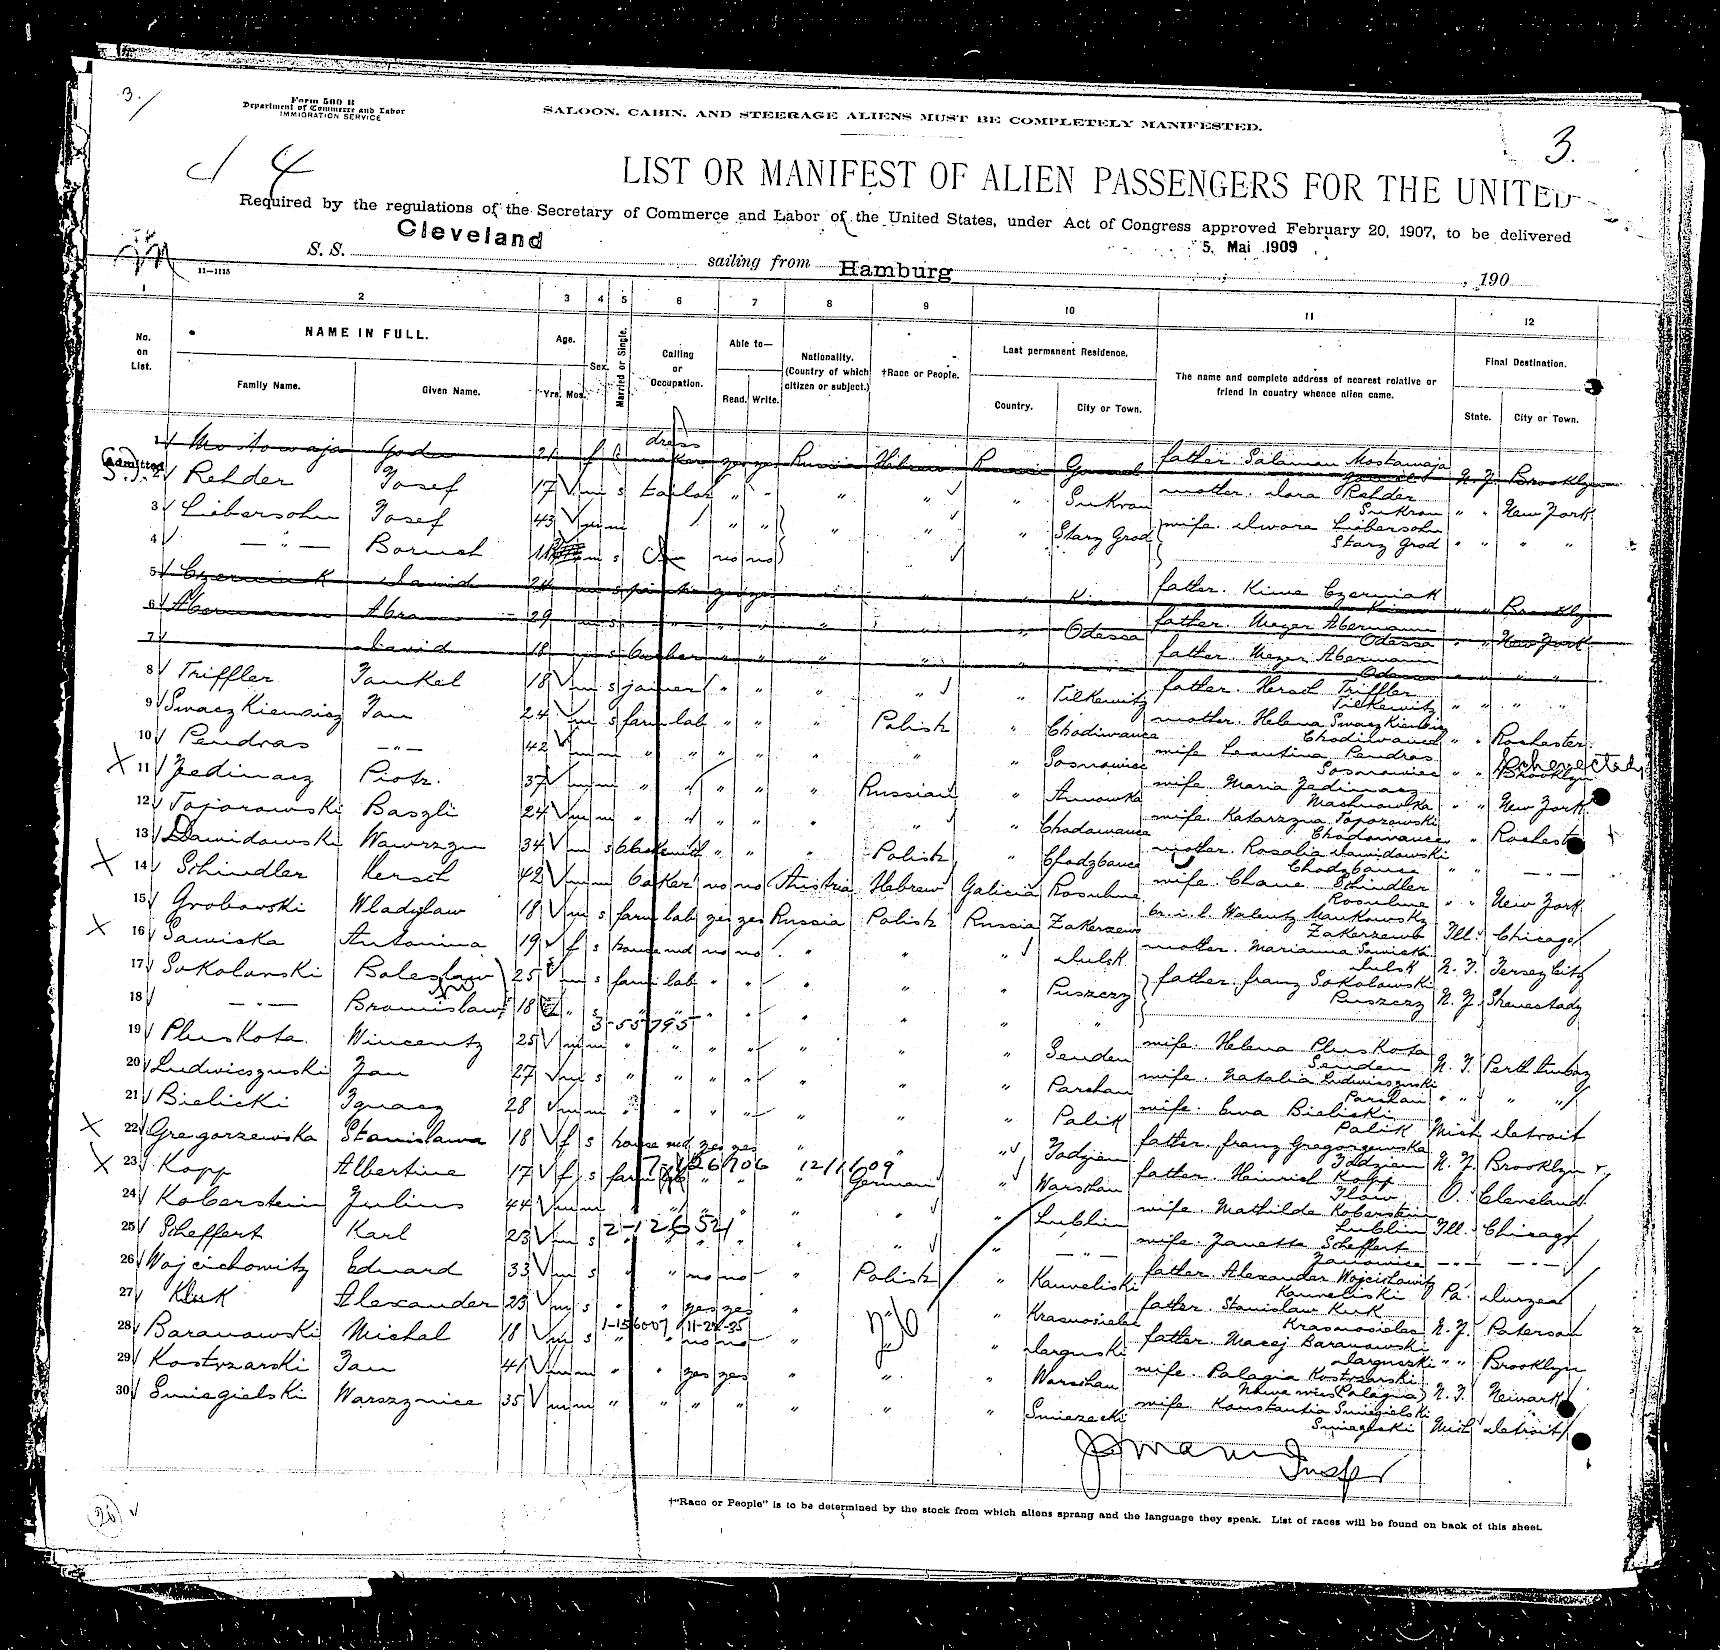 3.
Form 500 B
Department of Commerce and Labor
IMMIGRATION SERVICE
SALOON, CABIN, AND STEERAGE ALIENS MUST BE COMPLETELY MANIFESTED.
3.
4
LIST OR MANIFEST OF ALIEN PASSENGERS FOR THE UNITED
Required by the regulations of the Secretary of Commerce and Labor of the United States, under Act of Congress approved February 20, 1907, to be delivered
S. S. Cleveland sailing from Hamburg, 5. Mai 1909, 190
11—1115
1 2 3 4 5 6 7 8 9 10 11 12
No. on List. NAME IN FULL. Age. Sex. Married or Single. Calling or Occupation. Able to— Nationality. (Country of which citizen or subject.) †Race or People. Last permanent Residence. The name and complete address of nearest relative or friend in country whence alien came. Final Destination.
Family Name. Given Name. Yrs. Mos. Read. Write. Country. City or Town. State. City or Town.
1 21 f dress maker yes yes Russia Hebrew Russia father Salaman Mostawaja N.Y. Brooklyn
admitted
2 Rehder Josef 17 m s tailor " " " " " Sukron mother. Dora Rehder Sukron " " New York
3 Libersohn Josef 43 m m " " " " " Starz Grod wife. Dwora Libersohn Starz Grod " " " "
4 — " — Boruch 11 m s no no
5 Czerniak Dawid 24 m s father. Kiwe Czerniak " " Brooklyn
6 29 m s " " " " " Odessa father. Meyer Abermann Odessa " " New York
7 David 18 s barber " " " " " father Meyer Abermann Odessa " " " "
8 Triffler Jankel 18 m s joiner " " " " " Tilkewitz father. Hersch Triffler Tilkewitz " " " "
9 Swaczkiewicz Jan 24 m s farm lab " " " Polish " Chodiwance mother. Helena Chodiwance " " Rochester
10 Pendras — " — 42 m m " " " " " " " Sosnowice wife Leontina Pendras Sosnowice " " Brooklyn Schenectady
11 Jedinacz Piotr. 37 m m " " " " Russian " wife Maria Jedinacz " " New York
12 Toporowski Bazyli 24 m m " " " " " " Chodowance wife. Katarzyna Toporowski Chodowance " " Rochester
13 Dawidowski Wawrzyn 34 m s blacksmith " " " Polish " Chodzbance mother. Rosalia Dawidowski Chodzbance " " — " —
14 Schindler Hersch 42 m m baker no no Austria Hebrew Galicia Rosulna wife. Chane Schindler Rosulna " " New York
15 Grobowski Wladyslaw 18 m s farm lab yes yes Russia Polish Russia Zakerzewo br. i. l. Walenty Zakerzewo Ill. Chicago
16 Sawicka Antonina 19 f s house md no no " " " Dulsk mother. Marianna Sawicka Dulsk N.J. Jersey City
17 Sokolowski Boleslaw 25 m s farm lab " " " " " Puszczy father. franz Sokolowski Puszczy N.Y. Shenectady
18 — " — Bronislaw 18 " s " " " " " " " "
3-55795
19 Pluskota Wincenty 25 m m " " " " " " " Senden wife. Helena Pluskota Senden N.J. Perth Amboy
20 Ludwiczynski Jan 27 m s " " " " " " " Parchan wife. Natalia Ludwiczynski Parchan " " " "
21 Bielicki Ignacy 28 m m " " " " " " " Palik wife. Ewa Bieliski Palik Mich Detroit
22 Gregorzewska Stanislawa 18 f s house md yes yes " " " father. franz Gregorzewska N.Y. Brooklyn
12/11/09
23 Kopp Albertine 17 f s farm lab " " " German " Warschau father. Heinrich Kopp Ilow O. Cleveland
24 Koberstein Julius 44 m m " " " " " " Lublin wife. Mathilde Koberstein Lublin Ill. Chicago
2-126521
25 Scheffert Karl 23 m s " " " " " " " — " — wife. Janetta Scheffert — " — — " —
26 Wojcichowitz Eduard 33 m s " " no no " Polish " Kanveliski father. Alexander Wojcichowitz Kanveliski Pa. Duryea
27 Kuk Alexander 23 m s " " yes yes " " Krasnosielce father. Stanislaw Kuk Krasnosielce N.J. Paterson
1-156007 11-22-35
28 Baranowski Michal 18 m s " " no no " " father. Maciej Baranowski " " Brooklyn
29 Kostrzarski Jan 41 m m " " yes yes " " " Warschau wife. Palagia Kostrzarski N.J. Newark
30 Smiegielski Warszynice 35 m m " " " " " " " wife Konstantia Smiegielski Mich Detroit
Insp
26
†"Race or People" is to be determined by the stock from which aliens sprang and the language they speak. List of races will be found on back of this sheet.